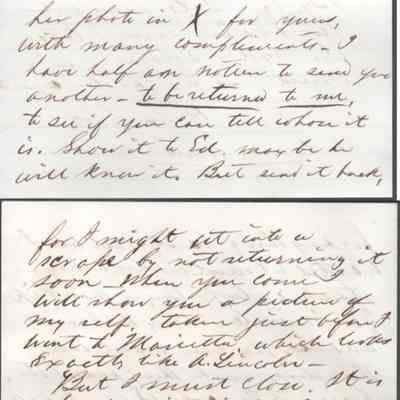 her photo in X for yours,
with many compliments - I
have half a notion to send you
another - to be returned to me,
to see if you can tell whose it
is. Show it to Ed. may be he
will know it. But send it back,
for I might get into a
scrape by not returning it
soon - When you come I
will show you a picture of
my self, taken just before I
went to Marietta which looks
exactly like A. Lincoln -
But I must close. It is